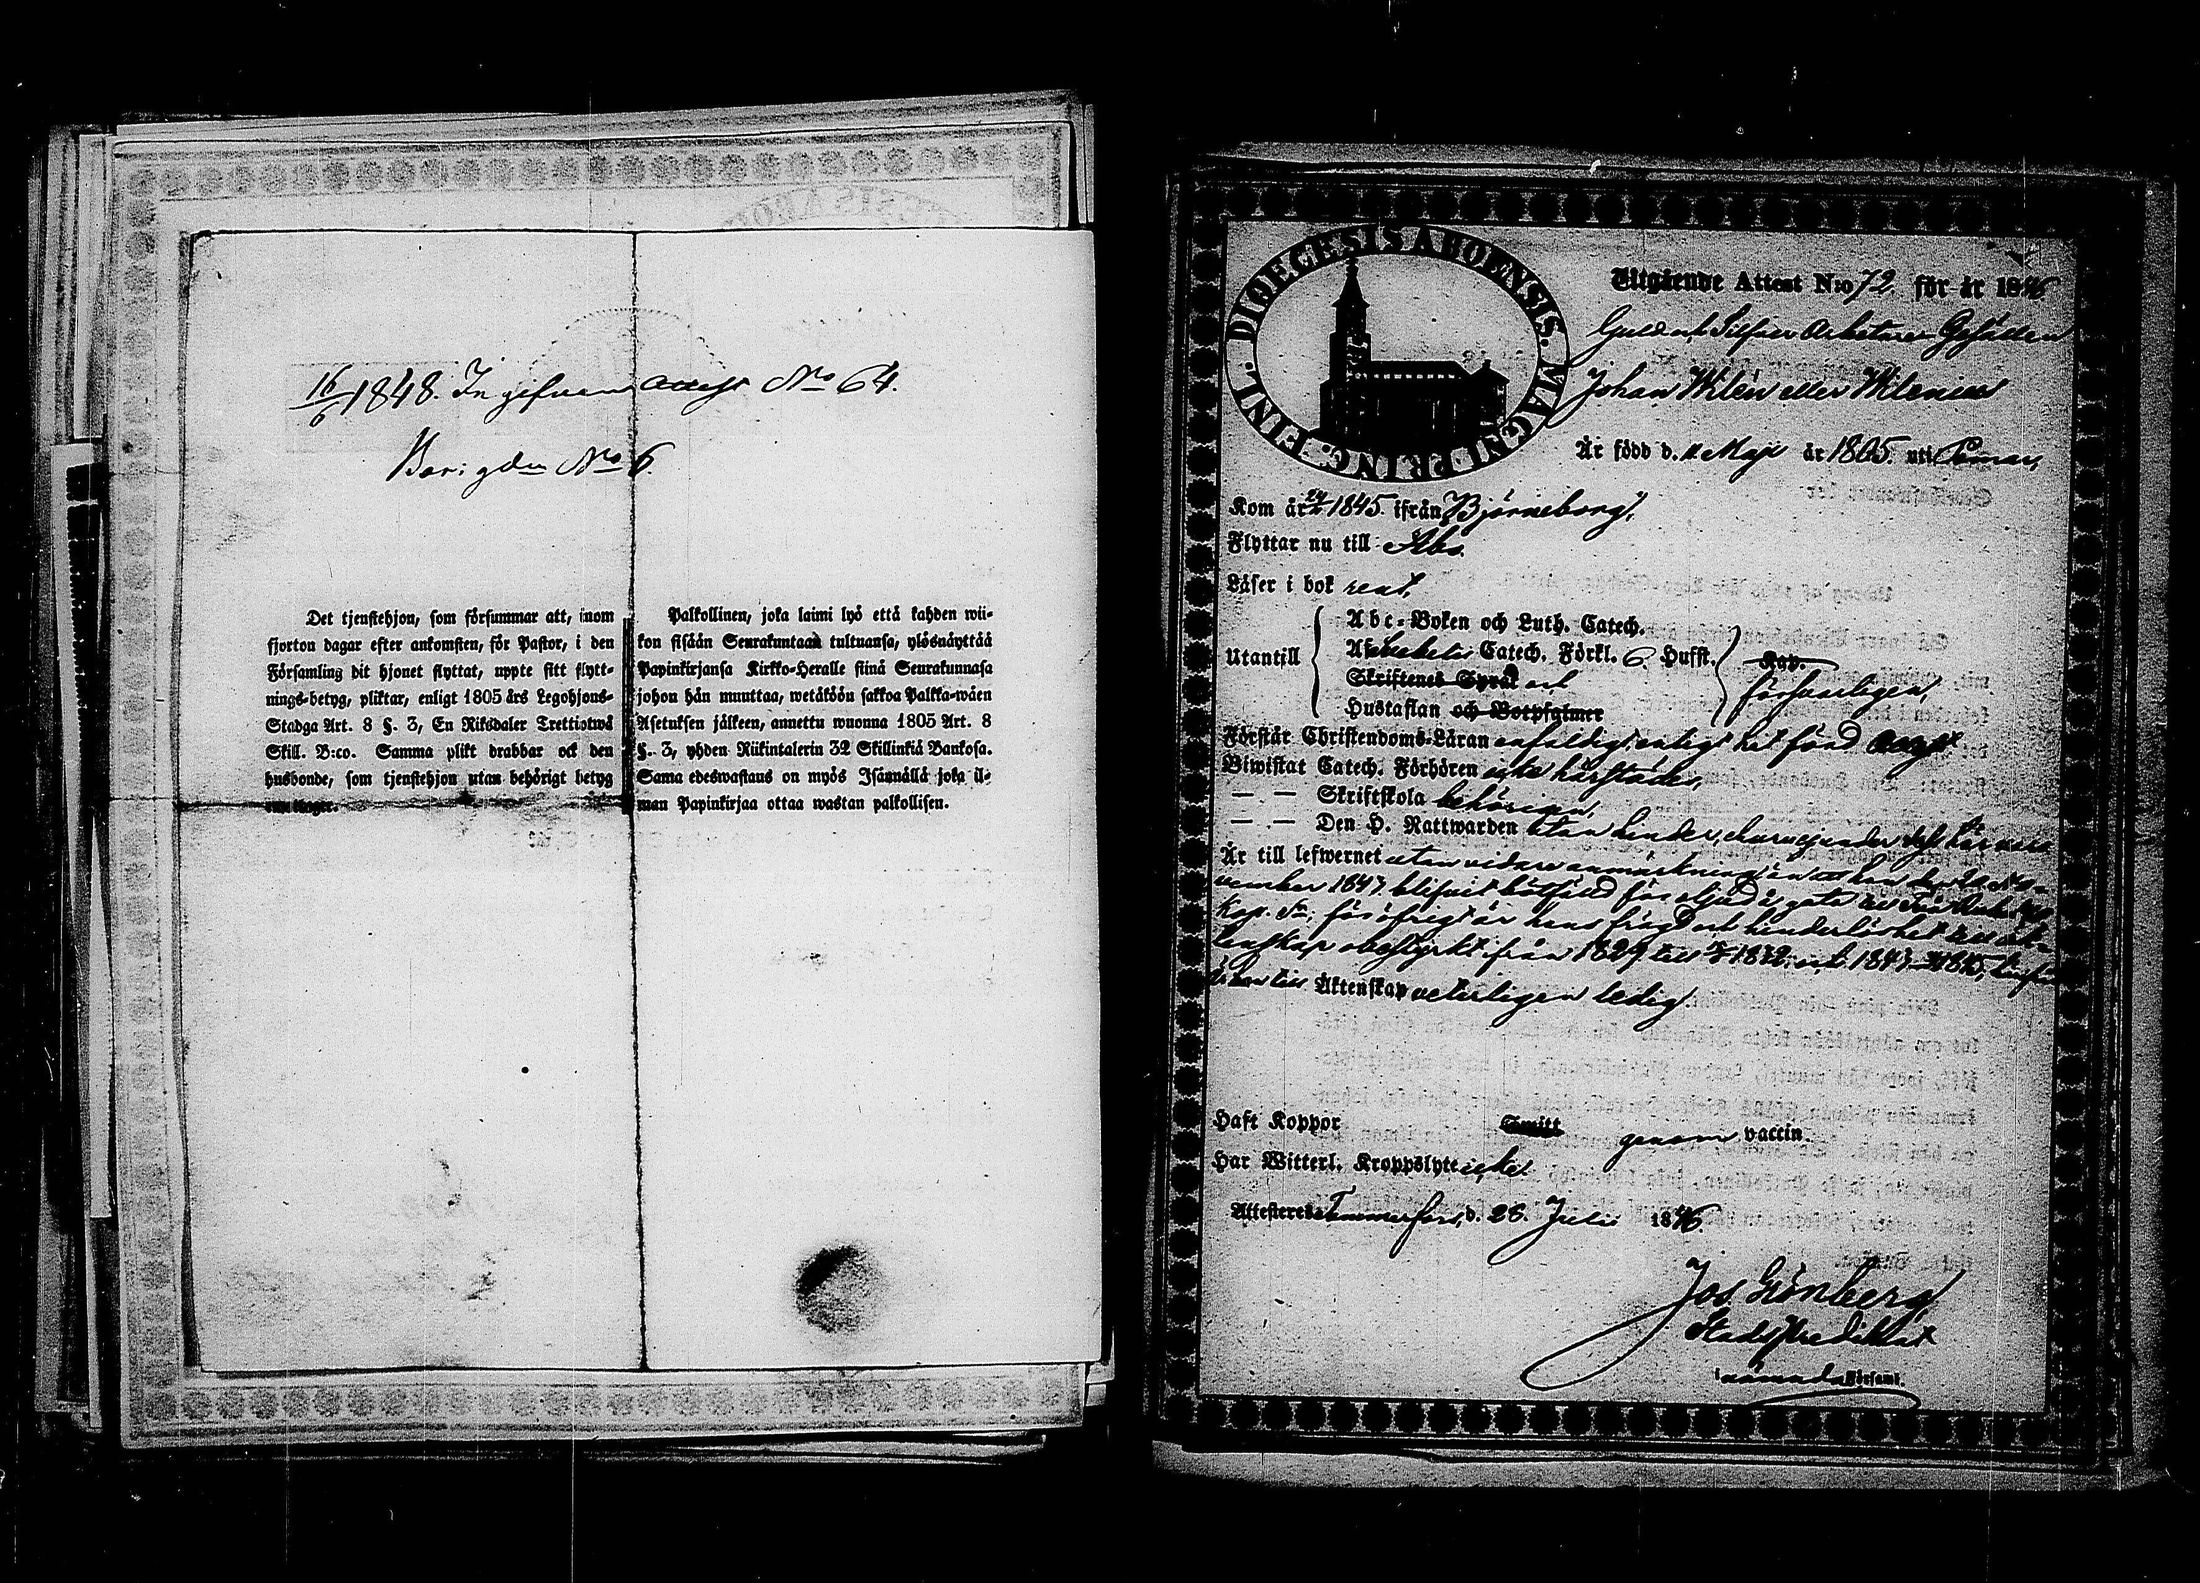 16/6 1848. Ingifven attest No 64.
Bor i gdn No 6.
Det tjenstehjon, som försummar att, inom
fjorton dagar efter ankomsten, för Pastor, i den
Församling dit hjonet flyttat, uppte sitt flytt-
nings-betyg, pliktar, enligt 1805 års Legohjons-
Stadga Art. 8 §. 3, En Riksdaler Trettiotwå
Skill. B:co. Samma plikt drabbar ock den
husbonde, som tjenstehjon utan behörigt betyg
Palkollinen, joka laimi lyö että kahden wii-
kon sisään Seurakuntaan tultuansa, ylösnäyttää
Papinkirjansa Kirkko-Heralle siinä Seurakunnasa
johon hän muuttaa, wetäköön sakkoa Palkka-wäen
Asetuksen jälkeen, annettu wuonna 1805 Art. 8
§. 3, yhden Riikintalerin 32 Skillinkiä Bankosa.
Sama edeswastaus on myös Isännällä joka il-
man Papinkirjaa ottaa wastan palkollisen.
FINL. DIOECESIS ABOENSIS. MAGNI PRINC.
Utgående Attest N:o 72 för år 1846
Guld och Silfver Arbetare Gesällen
Johan Wilén eller Wilenius
Är född d. 11 Maji år 1805. uti Pemar,
Kom år 24/2 1845. ifrån Björneborg,
Flyttar nu till Åbo.
Läser i bok rent,
Utantill
Abc-Boken och Luth. Catech.
Catech. Förkl. 6. Hufst.
Skriftenes Språk och
Hustaflan och Botpsalmer
Kap.
försvarligen,
Förstår Christendoms-Läran enfaldigt, enligt hit förd attest
Biwistat Catech. Förhören icke härstädes,
— — Skriftskola behörigen,
— — Den H. Nattwarden utan hinder,
Är till lefwernet utan vidare anmärkning än att han den
vember 1843 blifvit bötfälld för oljud å gata
Kap. för öfrigt är hans frägd och hinderlöshet till äk-
tenskap obestyrkt ifrån 1829 till 1842 och 1843
Äktenskap veterligen ledig.
Haft Koppor Smitt genom vaccin.
Har Witterl. Kroppslyte icke.
Attesteras Tammerfors, d. 28. Julii 1846.
Jos Grönberg
Stadspredikant
i nämnda Församl.